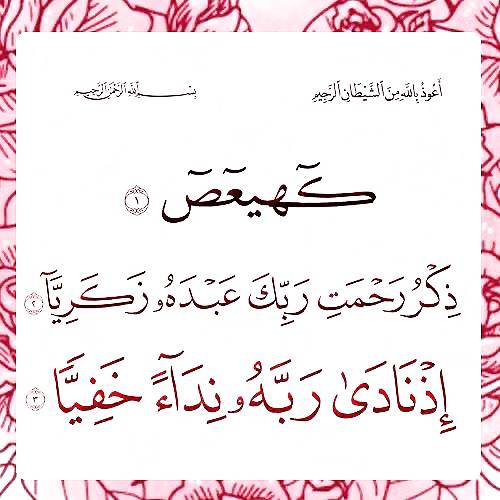 أَعُوذُ بِاللَّهِ مِنَ ٱلشَّيْطَانِ ٱلرَّجِيمِ بِسْمِ ٱللَّهِ ٱلرَّحْمَٰنِ ٱلرَّحِيمِ
كٓهيعٓصٓ ١
ذِكْرُ رَحْمَتِ رَبِّكَ عَبْدَهُۥ زَكَرِيَّآ ٢
إِذْ نَادَىٰ رَبَّهُۥ نِدَآءً خَفِيًّا ٣